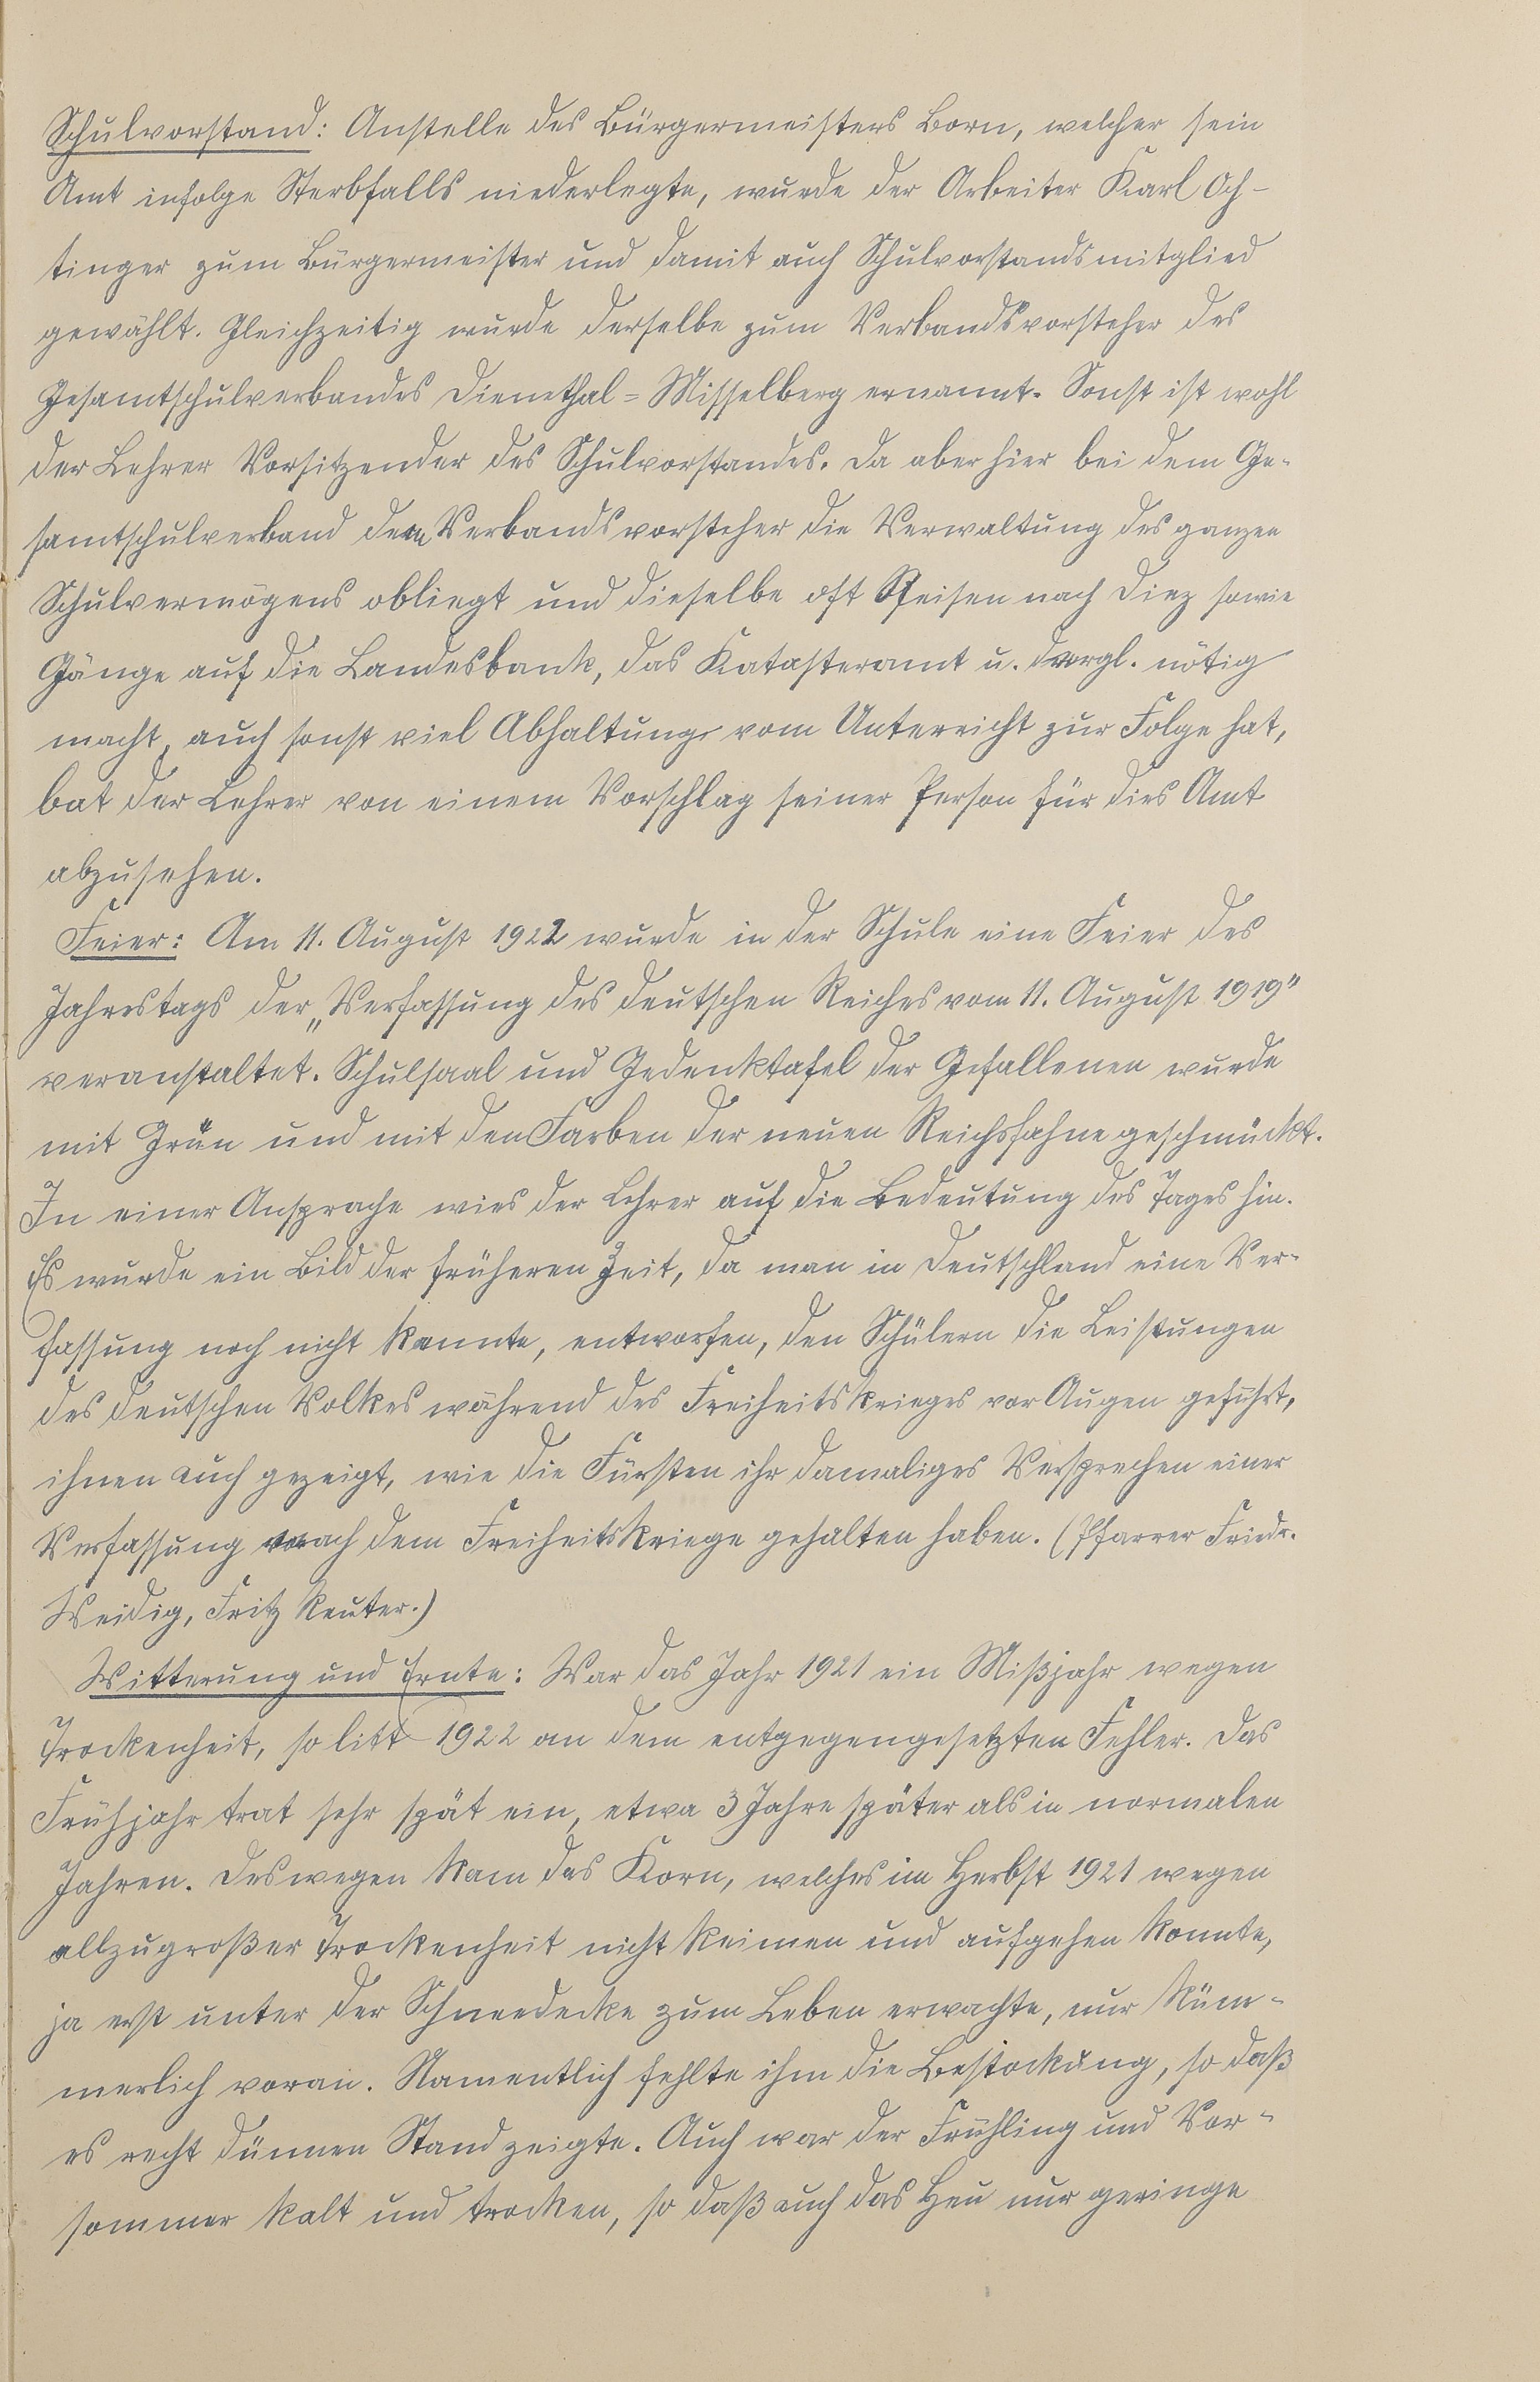 Schulvorstand: Anstelle des Bürgermeisters Born, welcher sein
Amt infolge Sterbfalls niederlegte, wurde der Arbeiter Karl Och-
tinger zum Bürgermeister und damit auch Schulvorstandsmitglied
gewählt. Gleichzeitig wurde derselbe zum Verbandsvorsteher des
Gesamtschulverbandes Dienethal-Misselberg ernannt. Sonst ist wohl
der Lehrer Vorsitzender des Schulvorstandes. Da aber hier bei dem Ge-
samtschulverband dem Verbandsvorsteher die Verwaltung des ganzen
Schulvermögens obliegt und dieselbe oft Reisen nach Diez sowie
Gänge auf die Landesbank, das Katasteramt u. dergl. nötig
macht, auch sonst viel Abhaltung vom Unterricht zur Folge hat,
bat der Lehrer von einem Vorschlag seiner Person für dies Amt
abzusehen.
Feier: Am 11. August 1922 wurde in der Schule eine Feier des
Jahrestags der „Verfassung des deutschen Reiches vom 11. August 1919"
veranstaltet. Schulsaal und Gedenktafel der Gefallenen wurde
mit Grün und mit den Farben der neuen Reichsfahne geschmückt.
In einer Ansprache wies der Lehrer auf die Bedeutung des Tages hin.
Es wurde ein Bild der früheren Zeit, da man in Deutschland eine Ver-
fassung noch nicht kannte, entworfen, den Schülern die Leistungen
des deutschen Volkes während des Freiheitskrieges vor Augen geführt,
ihnen auch gezeigt, wie die Fürsten ihr damaliges Versprechen einer
Verfassung nach dem Freiheitskriege gehalten haben. (Pfarrer Friedr.
Weidig, Fritz Reuter.)
Witterung und Ernte: War das Jahr 1921 ein Mißjahr wegen
Trockenheit, so litt 1922 an dem entgegengesetzten Fehler. Das
Frühjahr trat sehr spät ein, etwa 3 Jahre später als in normalen
Jahren. Deswegen kam das Korn, welches im Herbst 1921 wegen
allzugroßer Trockenheit nicht keimen und aufgehen konnte,
ja erst unter der Schneedecke zum Leben erwachte, nur küm-
merlich voran. Namentlich fehlte ihm die Bestockung, so daß
es recht dünnen Stand zeigte. Auch war der Frühling und Vor-
sommer kalt und trocken, so daß auch das Heu nur geringe